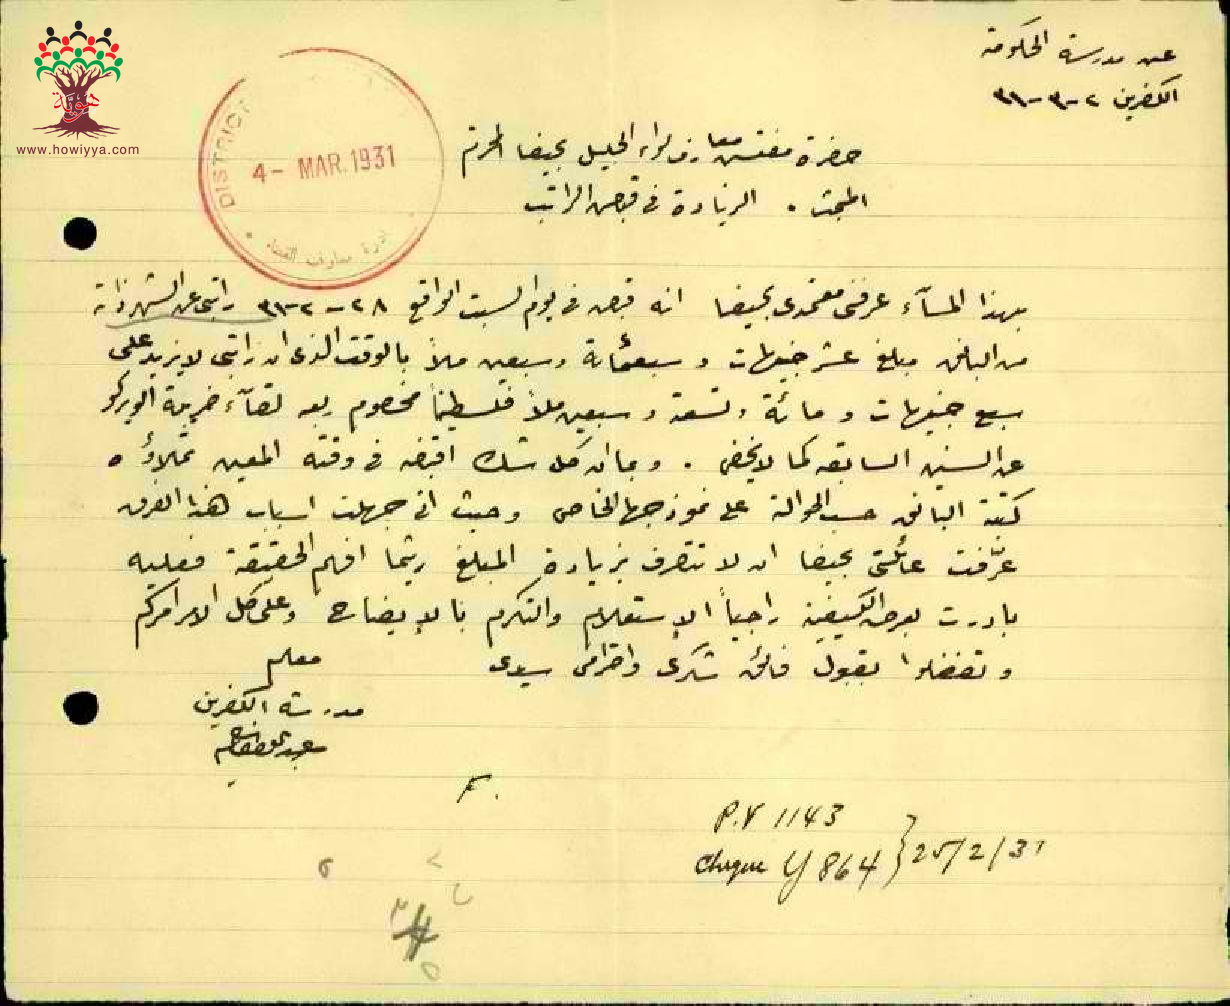 هوية
www.howiyya.com
عن مدرسة الحكومة
الكفرين ٢-٣-٣١
DISTRICT
4- MAR. 1931
ادارة معارف القضاء
حضرة مفتش معارف لواء الجليل بحيفا المحترم
المبحث . الزيادة في قبض الراتب
بهذا المسآء عرفني معتمدي بحيفا انه قبض في يوم السبت الواقع ٢٨-٢-٣١ راتبي عن الشهر ذاته
من البنك مبلغ عشر جنيهات و سبعمائة وسبعين ملاً بالوقت الذي ان راتبي لا يزيد على
سبع جنيهات و مائة وتسعة وسبعين ملاً فلسطينياً مخصوم ربعه لقضآء ضريبة الويركو
عن السنين السابقه كما لا يخفى . و بما ان كل شك اقبضه في وقته المعين تملاؤه
كتبة البنك حسب الحوالة على نموذجها الخاص وحيث اني جهلت اسباب هذا الفرق
عرّفت عائلتي بحيفا ان لا تتصرف بزيادة المبلغ ريثما افهم الحقيقة فعليه
بادرت بعرض الكيفية راجياً الاستعلام والتكرم بالايضاح وعلى كل الامر امركم
وتفضلوا بقبول فائق شكري واحترامي سيدي
معلم
مدرسة الكفرين
F.
P.V 1143
Cheque Y 864 } 25/2/31